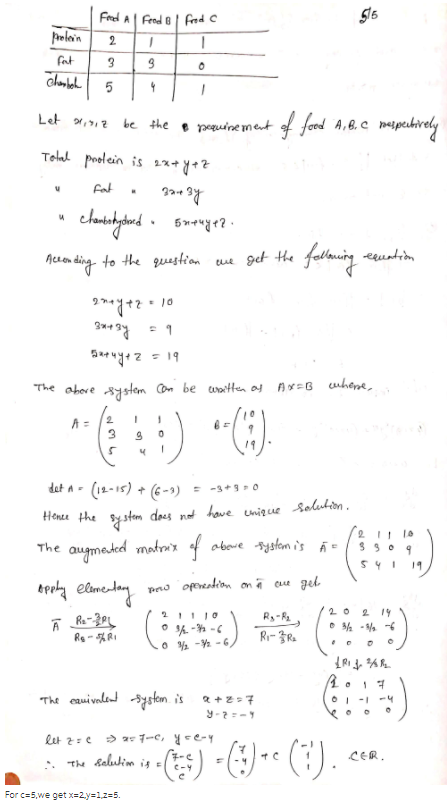 5/5
Food A | Food B | Food C
protein 2 1 1
fat 3 3 0
5 4 1
Let x, y, z be the requirement of food A, B, C respectively
Total protein is 2x+y+z
" fat " 3x+3y
" " 5x+4y+z.
According to the question we get the following equation
2x+y+z = 10
3x+3y = 9
5x+4y+z = 19
The above system can be written as Ax=B where,
A = (2 1 1
3 3 0
5 4 1)
B = (10
9
19).
det A = (12-15) + (6-3) = -3+3=0
Hence the system does not have unique solution.
The augmented matrix of above system is Ā = (2 1 1 10
3 3 0 9
5 4 1 19)
Apply elementary row operation on Ā we get
Ā R2-3/2R1
R3-5/2R1
(2 1 1 10
0 3/2 -3/2 -6
0 3/2 -3/2 -6)
R3-R2
R1-2/3R2
(2 0 2 14
0 3/2 -3/2 -6
0 0 0 0)
1/2R1 ↓ 2/3R2
(1 0 1 7
0 1 -1 -4
0 0 0 0)
The equivalent system is x+z=7
y-z=-4
let z=c ⇒ x=7-c, y=c-4
∴ The solution is = (7-c
c-4
c) = (7
-4
0) + c (-1
1
1). c∈R.
For c=5,we get x=2,y=1,z=5.